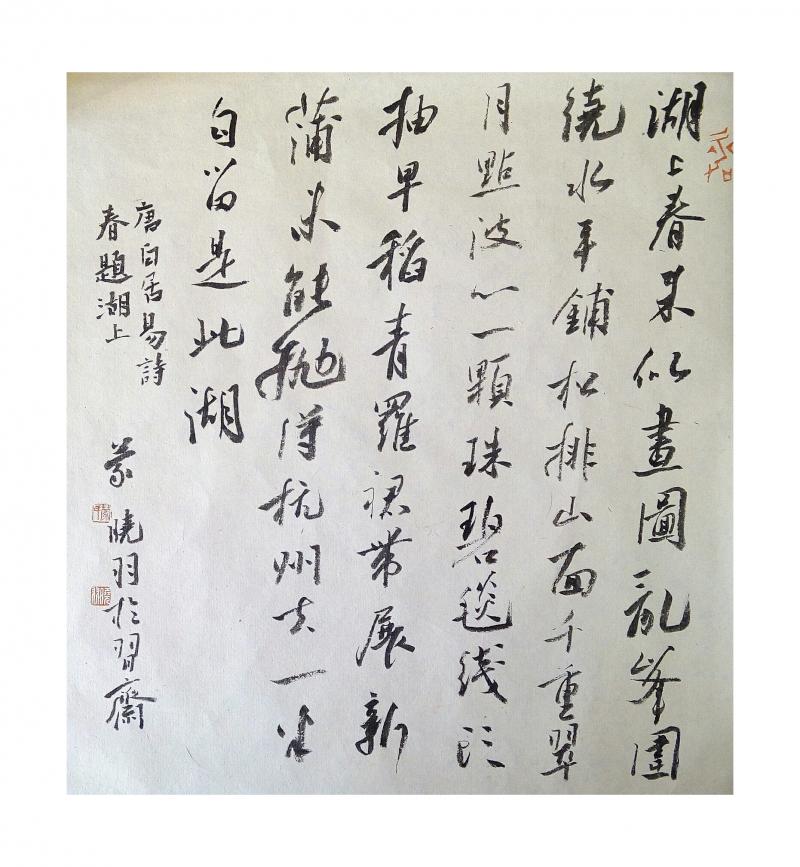 湖上春来似畫圖亂峯圍
繞水平鋪松排山面千重翠
月點波心一顆珠碧毯綫頭
抽早稻青羅裙帶展新
蒲未能抛得杭州去一半
勾留是此湖
唐白居易詩
春題湖上
蒙曉羽於習齋